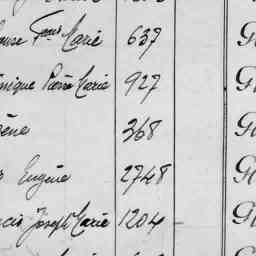 Marie 637 G
nique Pierre Marie 927 G
ène 368 G
Eugène 2748 G
cis Joseph Marie 1204 - G